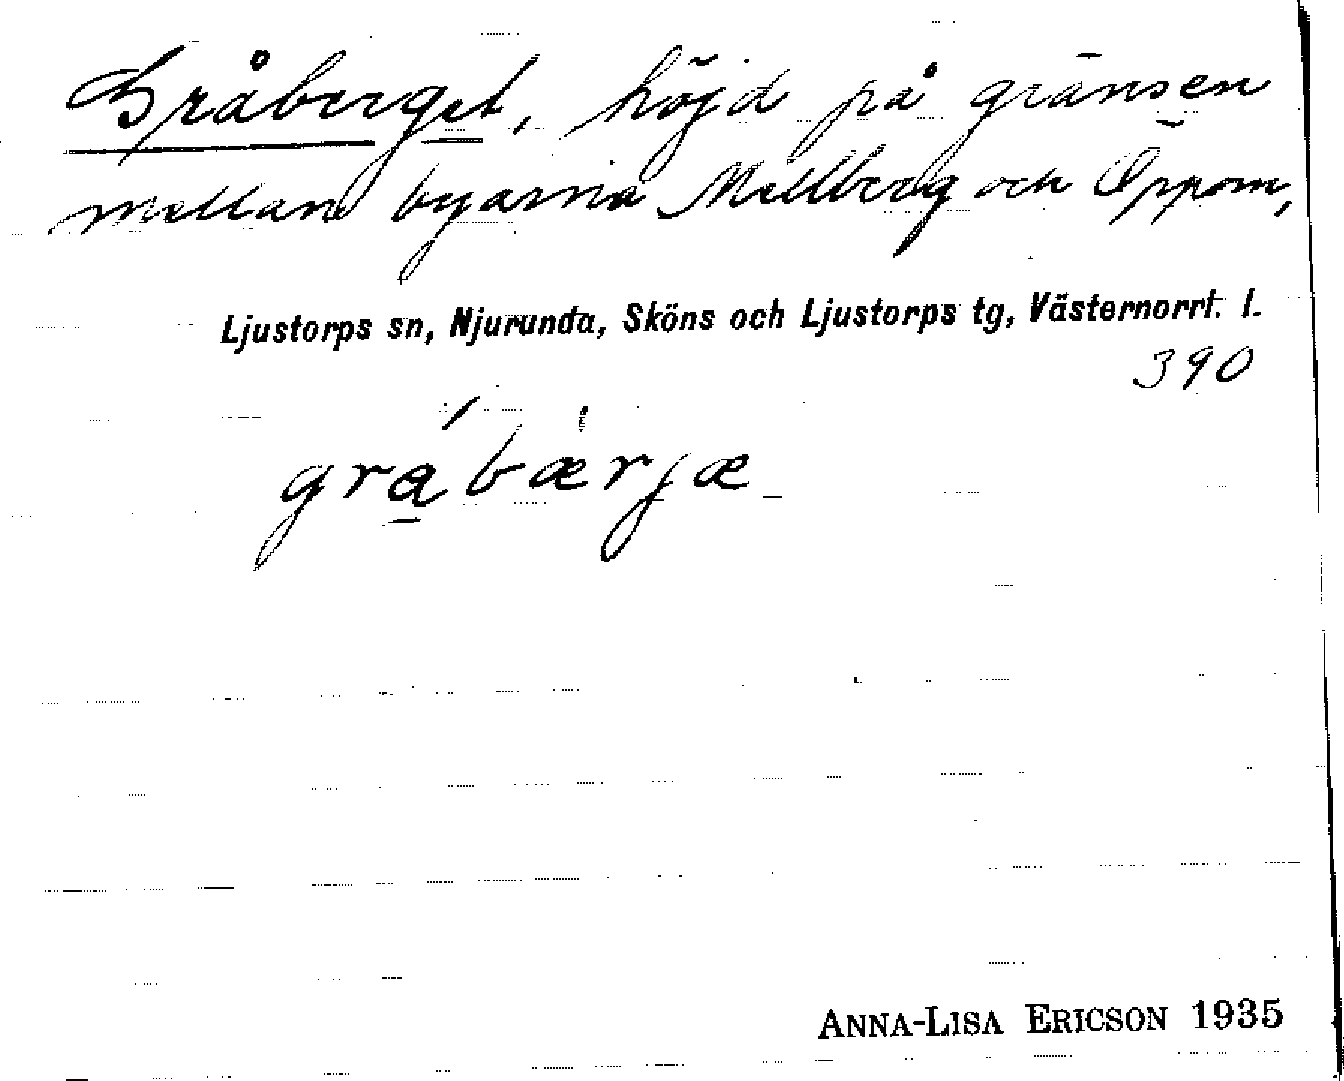 Gråberget, höjd på gränsen
mellan byarna Mellberg och Öppom,
Ljustorps sn, Njurunda, Sköns och Ljustorps tg, Västernorrl. l.
390
grábærjæ
ANNA-LISA ERICSON 1935